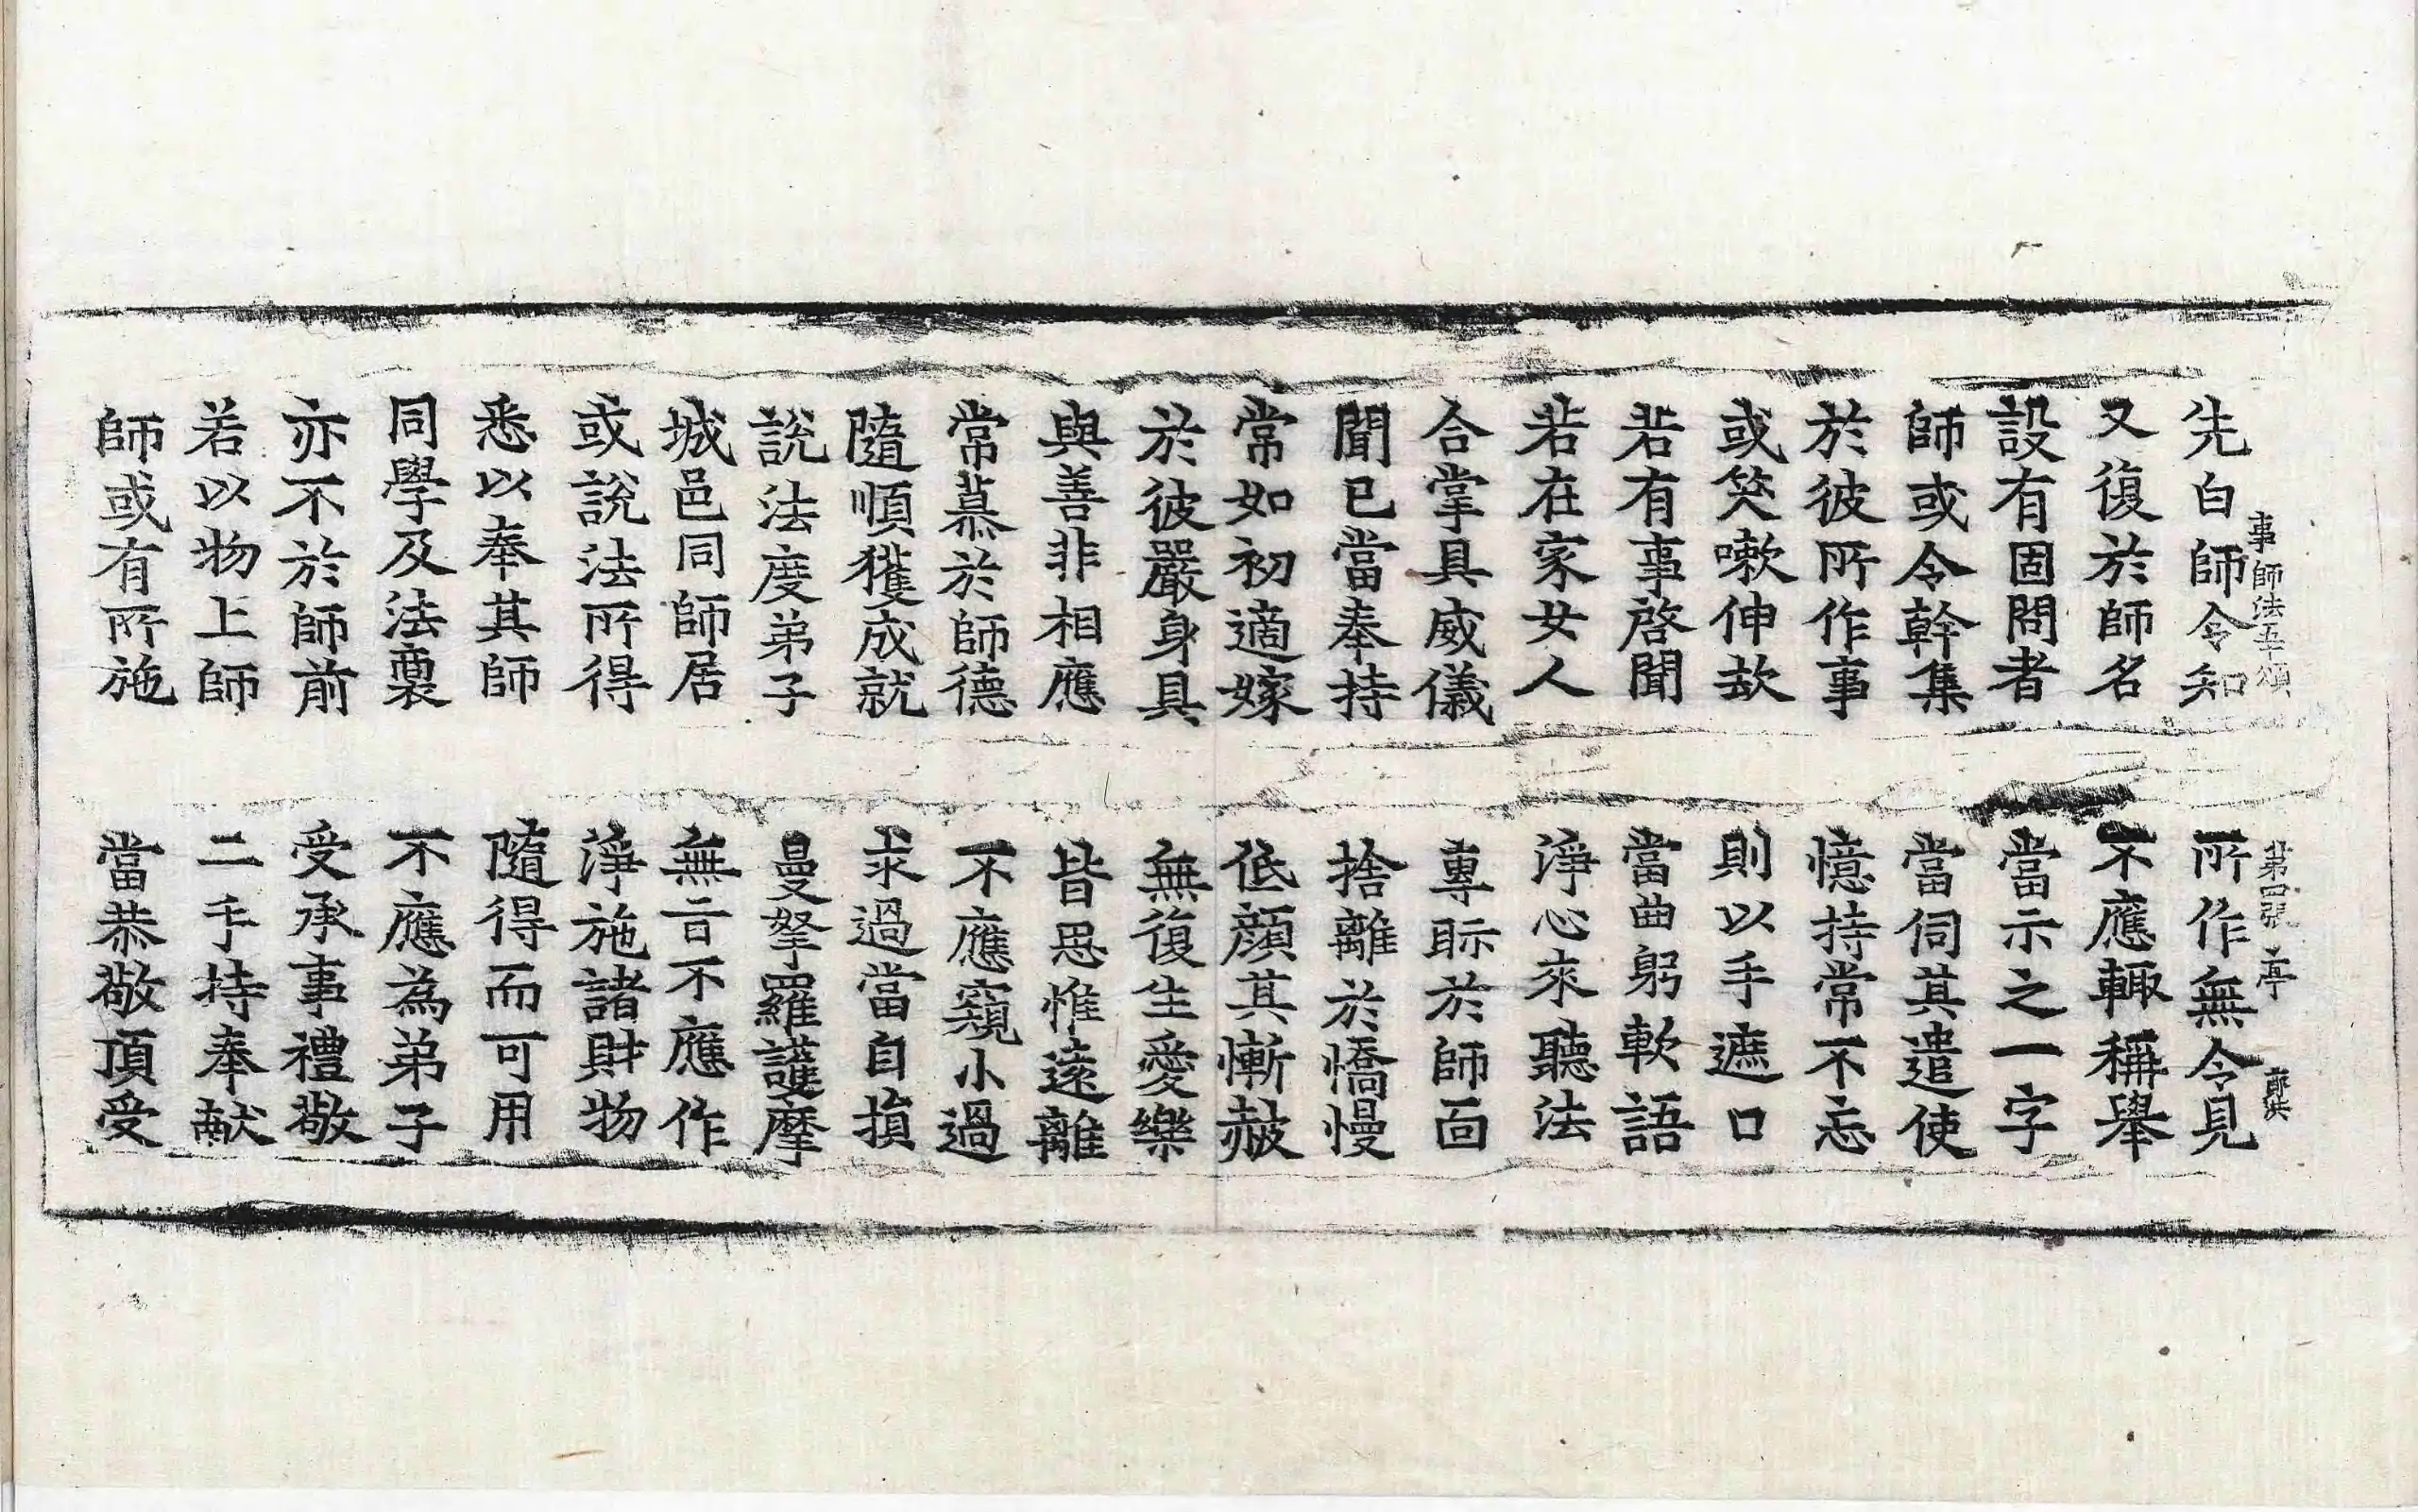 事師法五十頌 第四張 亭
先白師令知 所作無令見
又復於師名 不應輙稱舉
設有固問者 當示之一字
師或令幹集 當伺其遣使
於彼所作事 憶持常不忘
或笑嗽伸欬 則以手遮口
若有事啓聞 當曲躬軟語
若在家女人 淨心來聽法
合掌具威儀 專視於師面
聞已當奉持 捨離於憍慢
常如初適嫁 低顏其慚赧
於彼嚴身具 無復生愛樂
與善非相應 皆思惟遠離
常慕於師德 不應窺小過
隨順獲成就 求過當自損
說法度弟子 曼拏羅護摩
城邑同師居 無言不應作
或說法所得 淨施諸財物
悉以奉其師 隨得而可用
同學及法裔 不應為弟子
亦不於師前 受承事禮敬
若以物上師 二手持奉献
師或有所施 當恭敬頂受